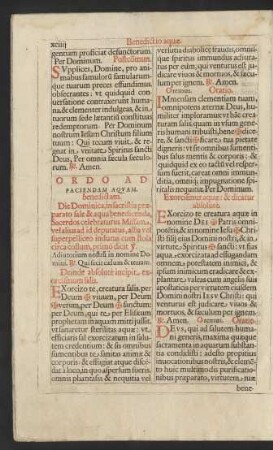 xciiij
Benedictio aquæ
gentium proficiat defunctorum.
Per Dominum. Postcōmun.
SVpplices, Domine, pro ani-
mabus famulorū famularumq́;
que tuarum preces effundimus,
obsecrantes: vt quidquid con-
uersatione contraxerunt huma-
na, & clementer indulgeas, & in
tuorum sede lætantiū constituas
redemptorum. Per Dominum
nostrum Iesum Christum filium
tuum: Qui tecum viuit, & re-
gnat in vnitate, Spiritus sancti
Deus, Per omnia sæcula sæculo-
rum. ℟. Amen.
ORDO AD
FACIENDAM AQVAM
benedictam.
Die Dominica, in sacristia præ-
parato sale & aqua benedicenda,
Sacerdos celebraturus Missam,
vel alius ad id deputatus, alba vel
superpelliceo indutus cum stola
circa collum, primo dicit ℣.
Adiutorium nostrū in nomine Do-
mini. ℟. Qui fecit cælum & terram.
Deinde absolute incipit, ex-
orcismum salis.
EXorcizo te, creatura salis, per
Deum ✠ viuum, per Deum
✠ verum, per Deum ✠ sanctum:
per Deum, qui te, per Eliseum
prophetam in aquam mitti iussit,
vt sanaretur sterilitas aquæ: vt
efficiaris sal exorcizatum in salu-
tem credentium: & sis omnibus
sumentibus te sanitas animæ &
corporis: & effugiat atque disce-
dat a loco, in quo aspersum fueris,
omnis phantasia & nequitia vel
versutia diabolicæ fraudis, omnis-
que spiritus immundus adiura-
tus per eum, qui venturus est iu-
dicare viuos & mortuos, & sæcu-
lum per ignem. ℟. Amen.
Oremus. Oratio.
IMmensam clementiam tuam,
omnipotens æterne Deus, hu-
militer imploramus vt hanc crea-
turam salis, quam in vsum gene-
ris humani tribuisti, bene✠dice-
re, & sancti✠ficare, tua pietate
digneris: vt sit omnibus sumenti-
bus salus mentis & corporis: &
quidquid ex eo tactū vel resper-
sum fuerit, careat omni immun-
ditia, omnique impugnatione spiri-
talis nequitiæ. Per Dominum.
Exorcismus aquæ: & dicitur
absolute.
EXorcizo te creatura aquæ in
nomine Dei ✠ Patris omni-
potentis, & in nomine Iesu ✠ Chri-
sti filij eius Domini nostri, & in
virtute Spiritus ✠ sancti: vt fias
aqua exorcizata ad effugandam
omnem potestatem inimici, & ip-
sum inimicum eradicare & ex-
plantare valeas cum angelis suis
apostaticis, per virtutem eiusdem
Domini nostri Iesu Christi: qui
venturus est iudicare viuos &
mortuos, & sæculum per ignem
℟. Amen. Oremus. Oratio.
DEus, qui ad salutem huma-
ni generis, maxima quæque
sacramenta in aquarum substan-
tia condidisti: adesto propitius
inuocationibus nostris, & elemē-
to huic multimodis purificatio-
nibus præparato, virtutem tuæ
bene-